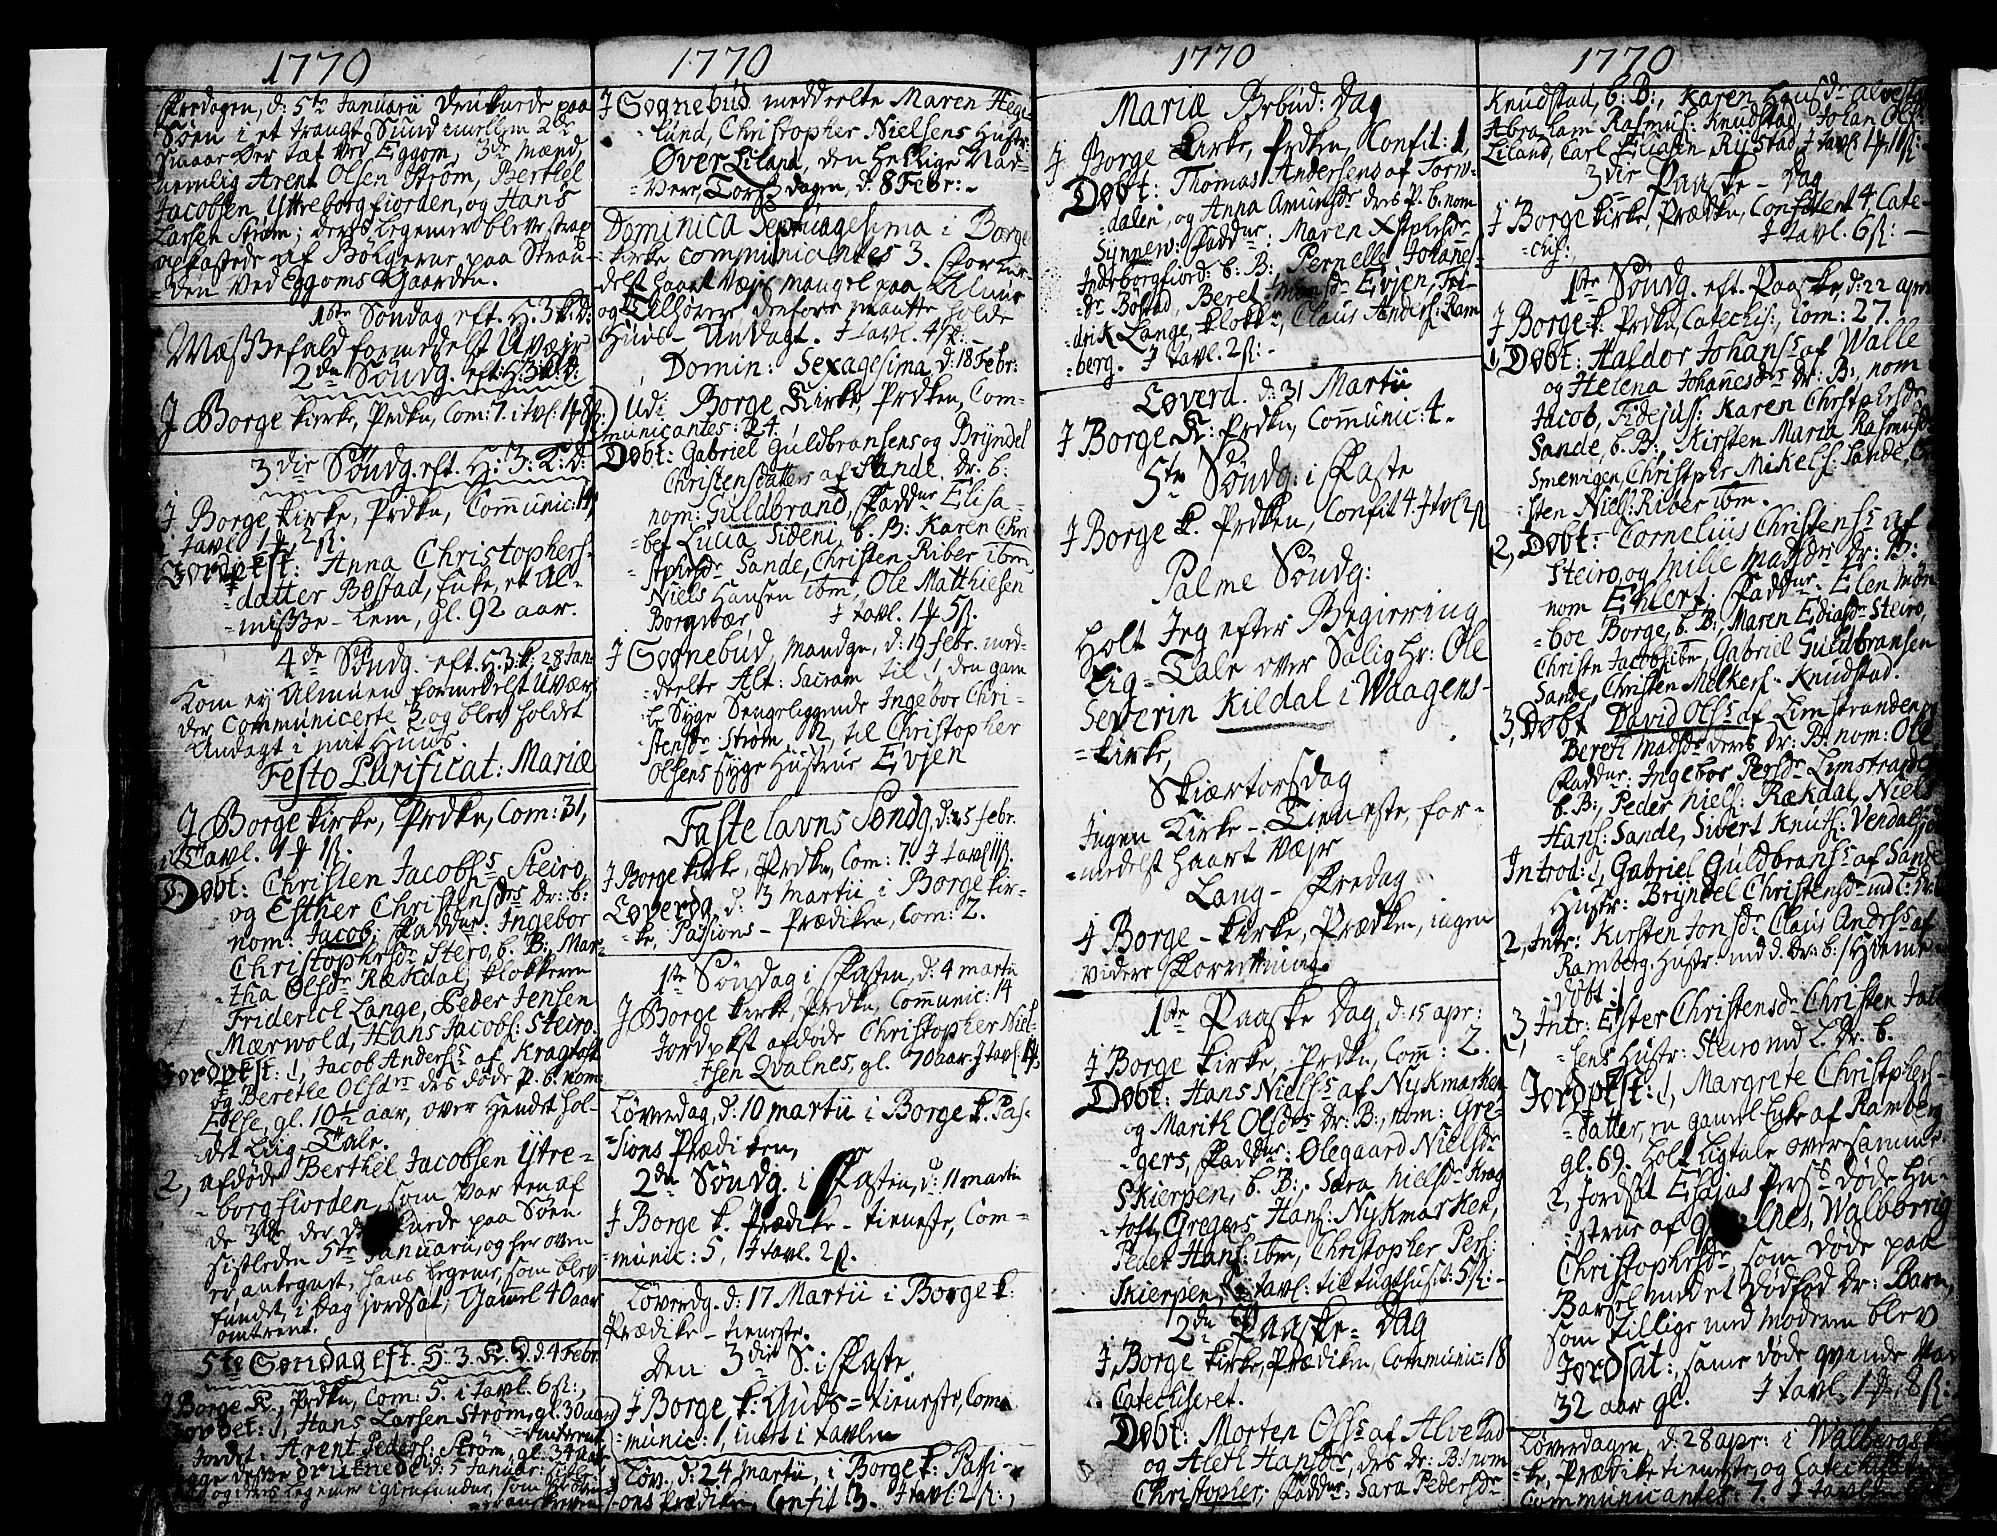 1770
Fredagen, d: 5te Januarii druknede paa
Søen i et trangt Sund mellem 2de
Skiær tæt ved Eggom, 3de Mænd
nemlig Arent Olsen Strøm, Berthel
Jacobsen Yttreborgfiorden, og Hans
Larsen Strøm; deres Legemer bleve strax
opkastede af Bølgerne paa Stran-
den ved Eggoms Gaarden.
1ste Søndag eft. H. 3 K. D:
Mæssefald formedelst Uvæjr
2den Søndg. eft. H: 3 K: D:
J Borge kirke, Prdken, Com: 7. i tavl: 1
3die Søndg. eft. H: 3: K: d:
J Borge kirke, Prdkn, Communic: 14
i tavl. 1 2ß.
Jordpkst: Anna Christophers-
datter Bostad, Enke, et Al-
misse-Lem, gl. 92 aar.
4de Søndg. eft. H. 3. K. 28 Jan
Kom ey Almuen formedelst Uvær
der communicerte 3 og blev holdet
Andagt i mit Huus.
Festo Purificat: Mariæ
J Borge kirke, Prdkn, Com: 31,
i Tavl. 1 1ß.
Døbt: Christen Jacobss Steiro,
og Esther Christensdrs dr: b:
nom: Jacob, Faddur: Ingebor
Christophersdr Stero, b. B: Mar-
tha Olsdr Rækdal, klokkeren
Friderich Lange, Peder Jensen
Mærwold, Hans Jacobs: Steiro.
Jordpkst: 1, Jacob Anderss af Kragtoft
og Berethe Olsdrs des døde P. b. nom
Edse, gl. 10½ aar, over Hendet hol-
det Liig-Tale.
2, afdøde Berthel Jacobsen Ytre-
borgfiorden, som var een af
de 3de der druknede paa Søen
sistleden 5te Januarii, og her oven
er antegnet, hans Legeme, som blev
fundet, i Dag jordsat, Gamel 40 aar
omtrent.
5te Søndag eft. H. 3. K. D. d. 4 Febr.
J Borge K., Prdkn, Com: 5. i tavl. 6ß:,
Jordet: 1, Hans Larsen Strøm, gl. 30 aar
omtrent
Jordet: Arent Peders: Strøm, gl. 34 aar
disse druknede d: 5 Januar:
1770
J Sognebud meddeelte Maren Hege-
lund, Christopher Nielsens Hustr:
Øver Liland, den hellige Nad-
vere, Torsdagen, d: 8 Febr:-
Dominica Septuagesima i Borge
kirke communicantes 3. Formi-
delst haart Væjr mangel paa Almue
og Tilhørere, derfore maatte holde
Huus-Andagt. J tavl. 4ß:-
Domin: Sexagesima d: 18 Febr:
Udi Borge Kirke, Prdken, Com-
municantes: 24.
Døbt: Gabriel Guldbransens og Bryndel
Christensdatters af Sande. Dr: b:
nom: Guldbrand, Faddur Elisa-
bet Lucia Sideni, b. B: Karen Chri-
stphersdr Sande, Christen Riber ibm
Niels Hansen ibm, Ole Matthiesen
Borgwær J tavl. 1 5ß.
J Sognebud, Mandgn, d: 19 Febr. med-
deelte Alt: Sacram til 1, den gam
le Syge Sengeliggende Ingebor Chri-
stensdr Strøm. 2, til Christopher
Olsens syge Hustrue Evjen
Fastelavns Søndg, d: 25 Febr.
J Borge kirke, Prdken, Com: 7. J tavl 11ß.
Løverdg, d: 3 Martii i Borge kir-
ke, Passions-Prædiken, Com: 2.
1ste Søndag i Fasten, d: 4 martii
J Borge kirke, Prdkn, Communic: 14
Jordpkst afdøde Christopher Niel-
sen Qvalnes, gl. 70 aar. J tavl. 1
Løverdag, d: 10 martii i Borge k. Pas-
sions Prædiken,
2den Søndg. i Fasten, d: 11 martii
J Borge k. Prædike-tieneste, Com-
munic: 5, J tavl. 2ß.
Løverdg. d: 17 Martii i Borge k:
Prædike-tieneste.
Den 3die S. i Faste.
J Borge k: Guds-tieneste, Com-
munic: 1, intet i tavlen
Løv. d: 24 martii, i Borge k: Passi-
ons Prædiken Confit: 3. J tavl: 2ß:,
1770
Mariæ Bebud: Dag
J Borge Kirke, Prdken, Confit: 1,
Døbt: Thomas Andersens af Torw-
dalen, og Anna Amundsdr ders P. b. nom
Synnew: Faddur: Maren Xstphersdr
Inderborgfiord: b. B: Pernelle Johanes-
dr Bostad, Beret Evjen, Fri-
drik Lange, klokkr, Claus Anders: Ram
berg. J tavl. 2ß:-
Løverd. d: 31 Martii
J Borge K: Prdkn, Communic: 4.
5te Søndg: i Faste
J Borge k. Prdken, Confit 4. J tvl: 2ß
Palme Søndg:
Holt Jeg efter Begiering
Lig-Tale over Salig Hr: Ole
Severin Kildal i Waagens-
kirke,
Skiærtorsdag
Ingen Kirke-Tieneste, for-
medelst haart Væjr
Lang-Fredag
J Borge-kirke, Prædken, ingen
videre Forrettning.
1ste Paaske Dag, d: 15 apr:
J Borge kirke, Prdkn, Com̅: 2.
Døbt: Hans Nielss af Nykmarken
og Marith Olsdrs Dr: B:, nom: Gre-
gers, Faddur: Olegaard Nielsdr
Skierpen, b. B:, Sara Nielsdr Krag
toft, Gregers Hans: Nykmarken,
Peder Hans: ibm, Christopher Pers:
Skierpen, J tavl: til tugthusit: 5ß:-
2den Paaske-Dag
J Borge kirke, Prædiken, Communic: 18
Catechiseret.
Døbt: Morten Olss af Alvestad
og Aleth Hansdr, des dr: B: nom
Christopher; Faddur: Sara Pedersdr
1770
Knudstad, b: B:, Karen Hansdr Alvestad
Abraham Rasmus: Knudstad, Johan Ols:
Liland, Carl Eliasen Rystad, J tavl. 1 1ß:-
3die Paaske-Dag
J Borge kirke, Prædkn, Confitent 4 Cate-
chis: J tavl. 6ß:-
1ste Søndg. eft. Paaske, d: 22 april
J Borge k: Prdkn, Catechis:, Com: 27.
1, Døbt: Haldor Johanss af Walle
og Helena Johannesdrs dr: B:, nom
Jacob, Fidejuss: Karen Christophersdr
Sande, b. B:, Kirsten Maria Rasmusdr
Smevigen, Christpher Mikels: Sande,
sten Niels: Riber ibm.
2, Døbt: Cornelius Christenss af
Steiro, og Mille Madsdrs dr: B:
nom Ehlert. Faddur. Elen
boe Borge, b. B:, Maren Ediasdr Steiro,
Christen Jacobs ibm, Gabriel Guldbransen
Sande, Christen Melkers- Knudstad.
3, Døbt David Olss af Limstranden og
Bereti Madsdr deres Dr: B: nom: Ole
Faddur. Ingebor Persdr Lymstranden
b. B:, Peder Niels: Rækdal, Niels
Hans: Sande, Sivert Knuts: Vendalsjord
Introd: 1, Gabriel Guldbranss af Sande
Hustr: Bryndel Christensdr med L: dr: b:
2, Intr: Kirsten Jonsdr Claus Anders: af
Ramberg. Hustr: med d. Dr: b. / Hieme-
døbt /
3, Intr: Ester Christensdr Christen Jacob-
sens Hustr: Steiro med L. Dr: b.
Jordpkst: 1, Margrete Christphers-
datter, en gamel Enke af Ramberg
gl. 69. holt ligtale over samme.
2, Jordsat Esajas Perss døde Hu-
strue af Qvalnes, Walborrig
Christophersdr, som døde paa
Barsel med et dødfød Dr: Barn,
som tillige med Moderen blev
Jordsat:, same døde qvinde var
32 aar gl. J tavl. 1 8ß:
Løverdagen, d: 28 apr: i Walbergs kir-
ke, Prædike tieneste, og Catechisation
Communicantes: 7. J tavlen